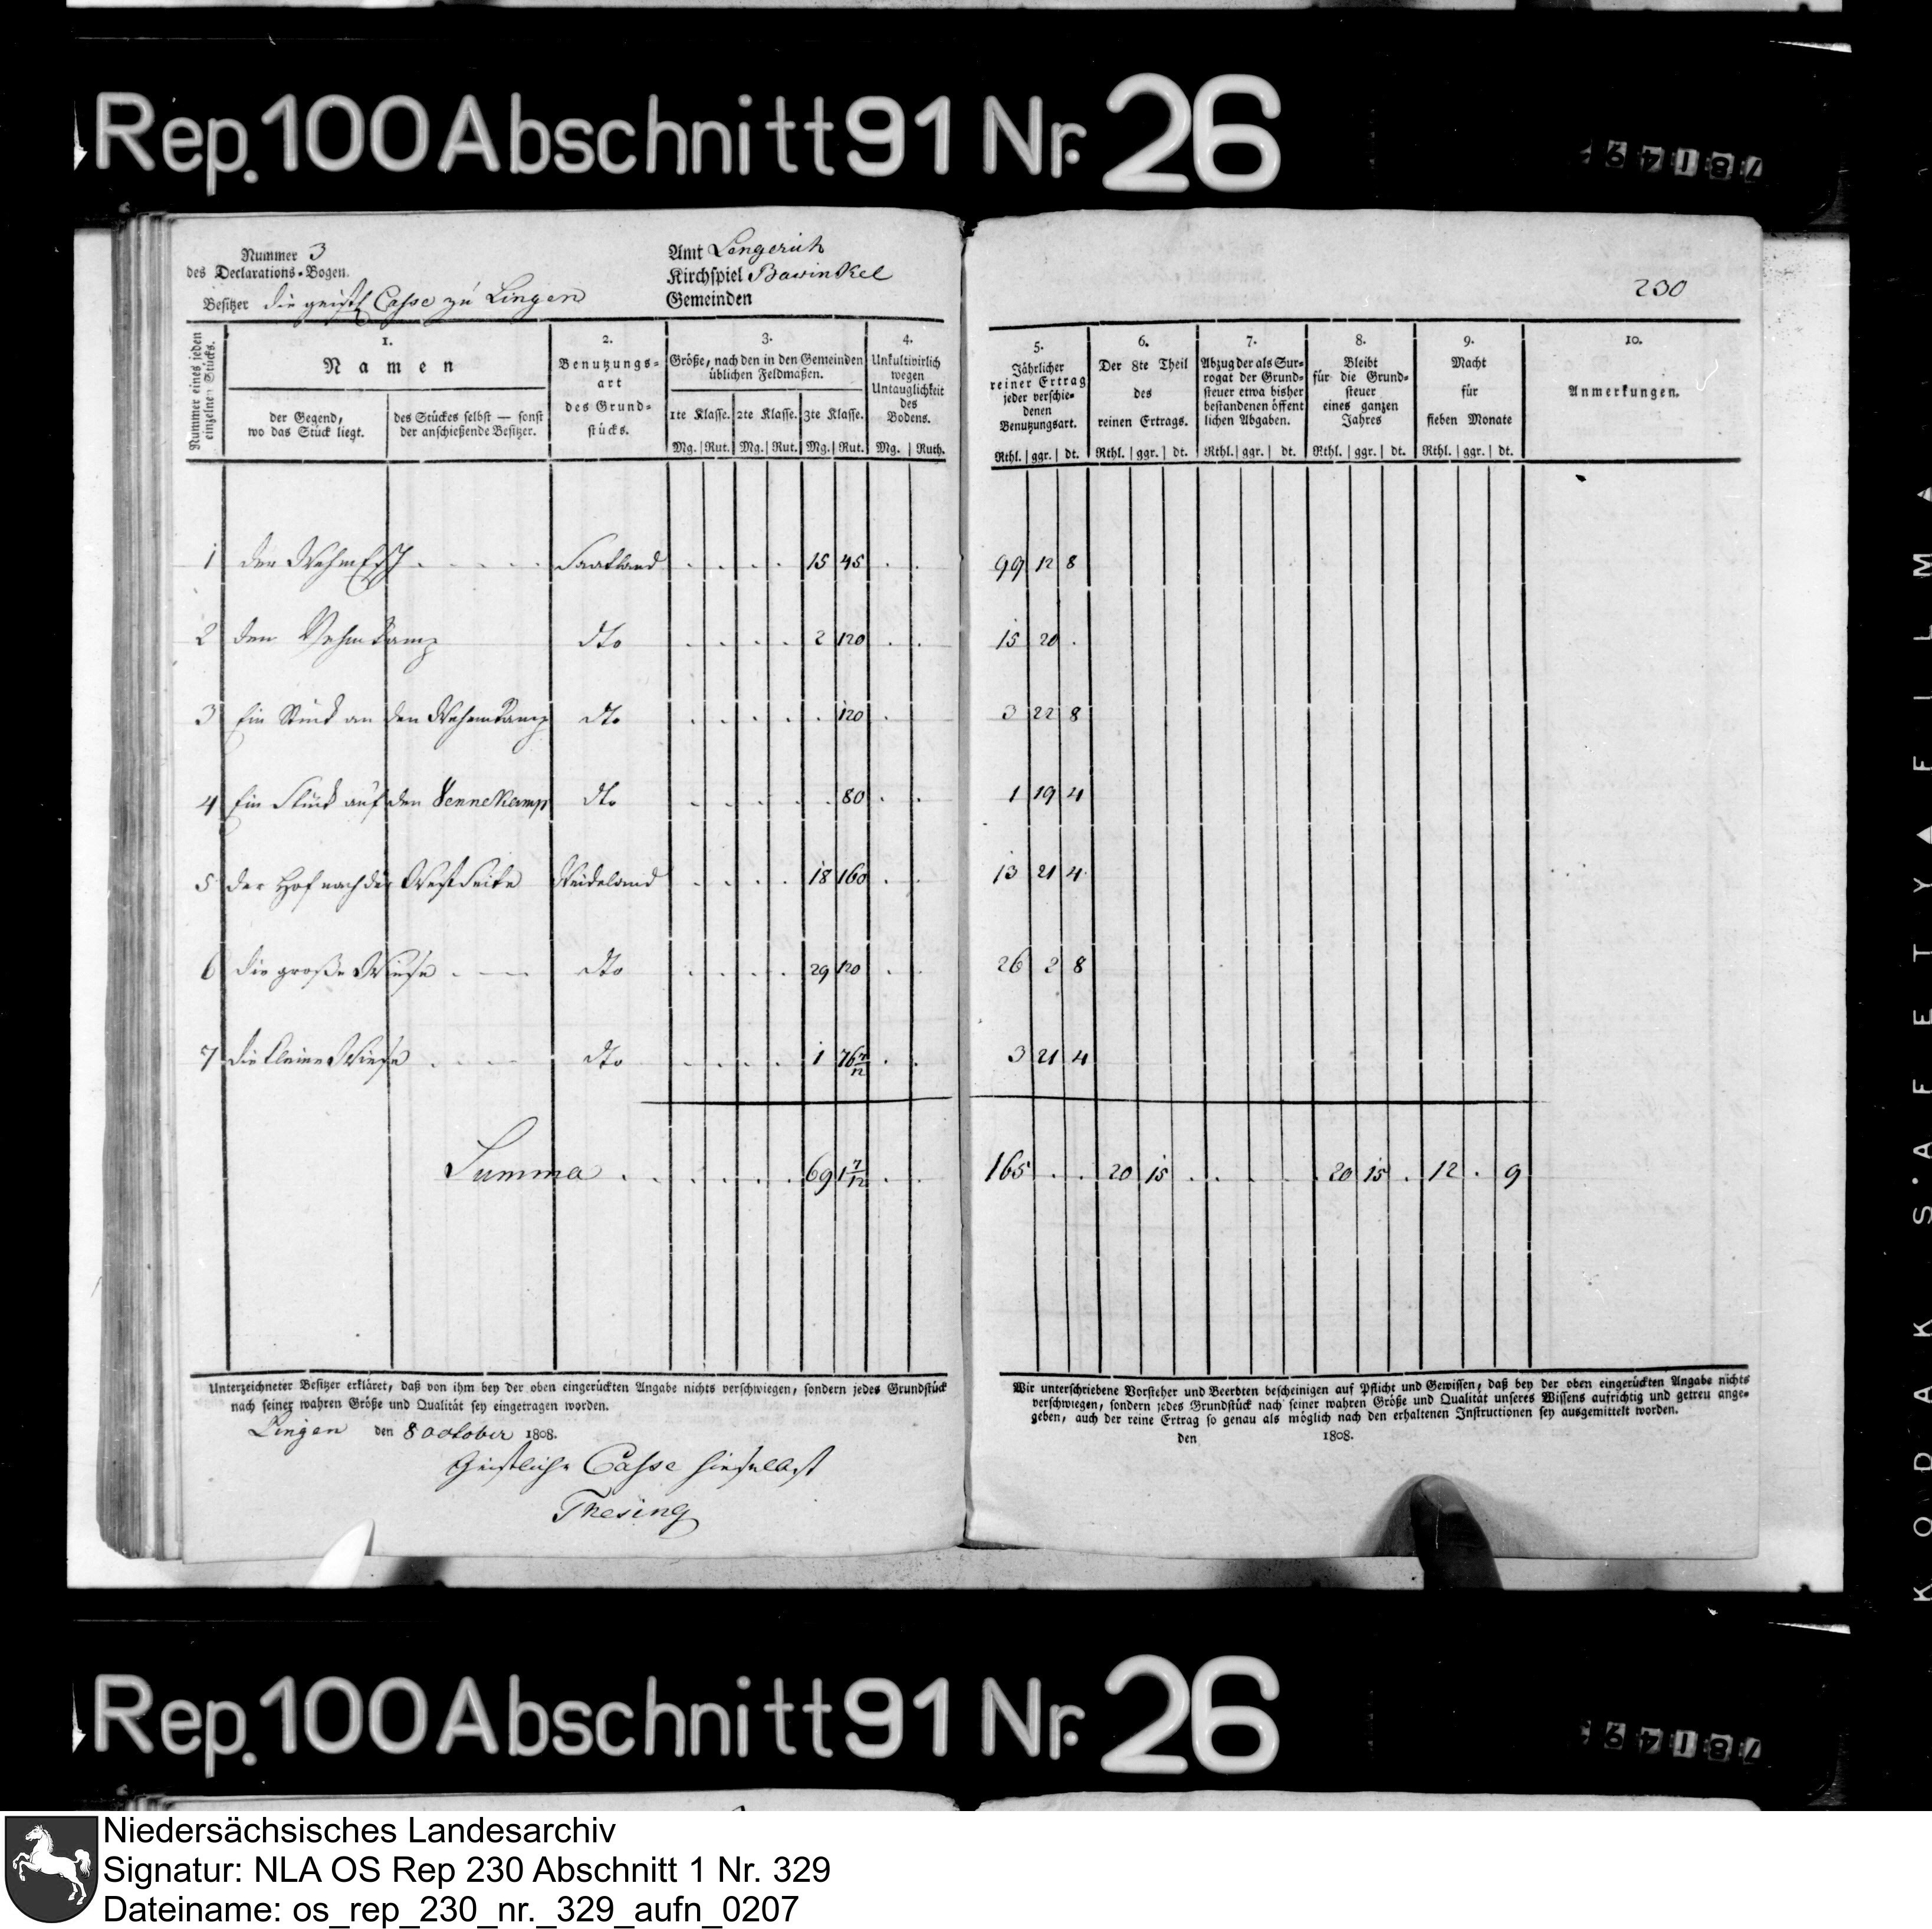 Rep. 100 Abschnitt 91 Nr. 26
78149
Nummer 3
des Declarations-Bogen.
Besitzer die geistl Casse zu Lingen
Amt Lengerich
Kirchspiel Bawinkel
Gemeinden
230
Nummer eines jeden einzelne Stücks.
1.
Namen
der Gegend, wo das Stück liegt.
des Stückes selbst — sonst der anschießende Besitzer.
2.
Benutzungsart des Grundstücks.
3.
Größe, nach den in den Gemeinden üblichen Feldmaßen.
1te Klasse. 2te Klasse. 3te Klasse.
Mg. Rut. Mg. Rut. Mg. Rut.
4.
Unkultivirlich wegen Untauglichkeit des Bodens.
Mg. Ruth.
5.
Jährlicher reiner Ertrag jeder verschiedenen Benutzungsart.
Rthl. ggr. dt.
6.
Der 8te Theil des reinen Ertrags.
Rthl. ggr. dt.
7.
Abzug der als Surrogat der Grundsteuer etwa bisher bestandenen öffentlichen Abgaben.
Rthl. ggr. dt.
8.
Bleibt für die Grundsteuer eines ganzen Jahres
Rthl. ggr. dt.
9.
Macht für sieben Monate
Rthl. ggr. dt.
10.
Anmerkungen.
1 den Wehm Esch Saatland 15 45 99 12 8
2 den Wehm Kamp dto 2 120 15 20
3 Ein Stück an den Wehmkamp dto 120 3 22 8
4 Ein Stück auf den Vennekamp dto 80 1 19 4
5 der Hof nach der Westseite Weideland 18 160 13 21 4
6 die große Wiese dto 29 120 26 2 8
7 die kleine Wiese dto 1 76 7/12 3 21 4
Summa 69 1 7/12 165 20 15 20 15 12 9
Unterzeichneter Besitzer erkläret, daß von ihm bey der oben eingerückten Angabe nichts verschwiegen, sondern jedes Grundstück
nach seiner wahren Größe und Qualität sey eingetragen worden.
Lingen den 8 october 1808.
Geistliche Casse hieselbst
Thesing
Wir unterschriebene Vorsteher und Beerbten bescheinigen auf Pflicht und Gewissen, daß bey der oben eingerückten Angabe nichts
verschwiegen, sondern jedes Grundstück nach seiner wahren Größe und Qualität unseres Wissens aufrichtig und getreu ange-
geben, auch der reine Ertrag so genau als möglich nach den erhaltenen Instructionen sey ausgemittelt worden.
den 1808.
KODAK S.AFETY FILM
Rep. 100 Abschnitt 91 Nr. 26
78149
Niedersächsisches Landesarchiv
Signatur: NLA OS Rep 230 Abschnitt 1 Nr. 329
Dateiname: os_rep_230_nr._329_aufn_0207